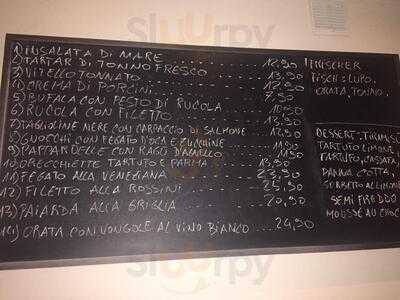 1) INSALATA DI MARE 12,90
2) TARTAR DI TONINO FRESCO 13,90
3) VITELLO TONNATO 12,90
4) CREMA DI PORCINI 7,90
5) BUFALA CON PESTO DI RUCOLA
6) RUCOLA CON FILETTO 13,90
7) TAGLIOLINE NERE CON CARPACCIO DI SALMONE 12,90
8) GNOCCHI CON FEGATO D'OCA E ZUCCHINE
9) PAPPARDELLE CON RAGÙ D'AGNELLO
10) ORECCHIETTE TARTUFO E PARMA 13,90
11) FEGATO ALLA VENEZIANA 23,90
12) FILETTO ALLA ROSSINI 25,90
13) PAIARDA ALLA GRIGLIA 20,90
14) ORATA CON VONGOLE AL VINO BIANCO 24,90
FRISCHER
FISCH: LUPO,
ORATA, TONNO.
DESSERT: TIRAMISU
TARTUFO LIMONE
TARTUFO, CASSATA,
PANNA COTTA,
SORBETTO AL LIMONE
SEMI FREDDO
MOUSSE AU CHOC
sluurpy
sluurpy